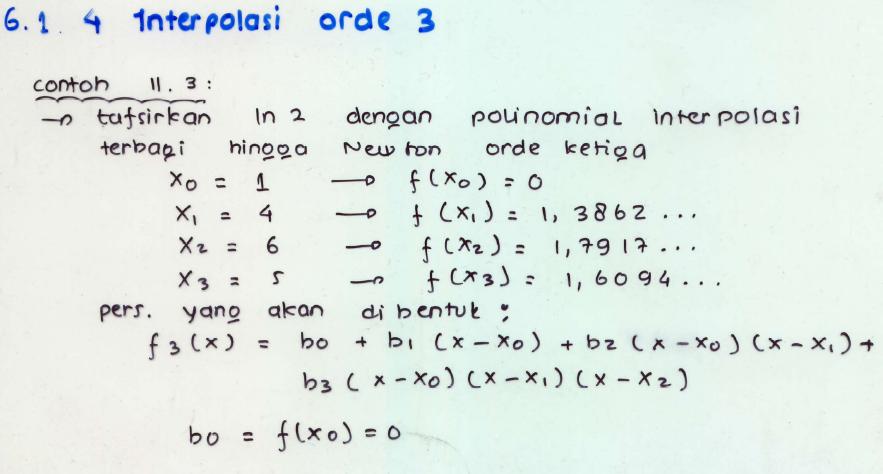 6.1.4 Interpolasi orde 3
contoh 11.3:
→ tafsirkan ln 2 dengan polinomial interpolasi
terbagi hingga Newton orde ketiga
x₀ = 1 → f(x₀) = 0
x₁ = 4 → f(x₁) = 1,3862...
x₂ = 6 → f(x₂) = 1,7917...
x₃ = 5 → f(x₃) = 1,6094...
pers. yang akan dibentuk;
f₃(x) = b₀ + b₁(x-x₀) + b₂(x-x₀)(x-x₁)+
b₃(x-x₀)(x-x₁)(x-x₂)
b₀ = f(x₀) = 0